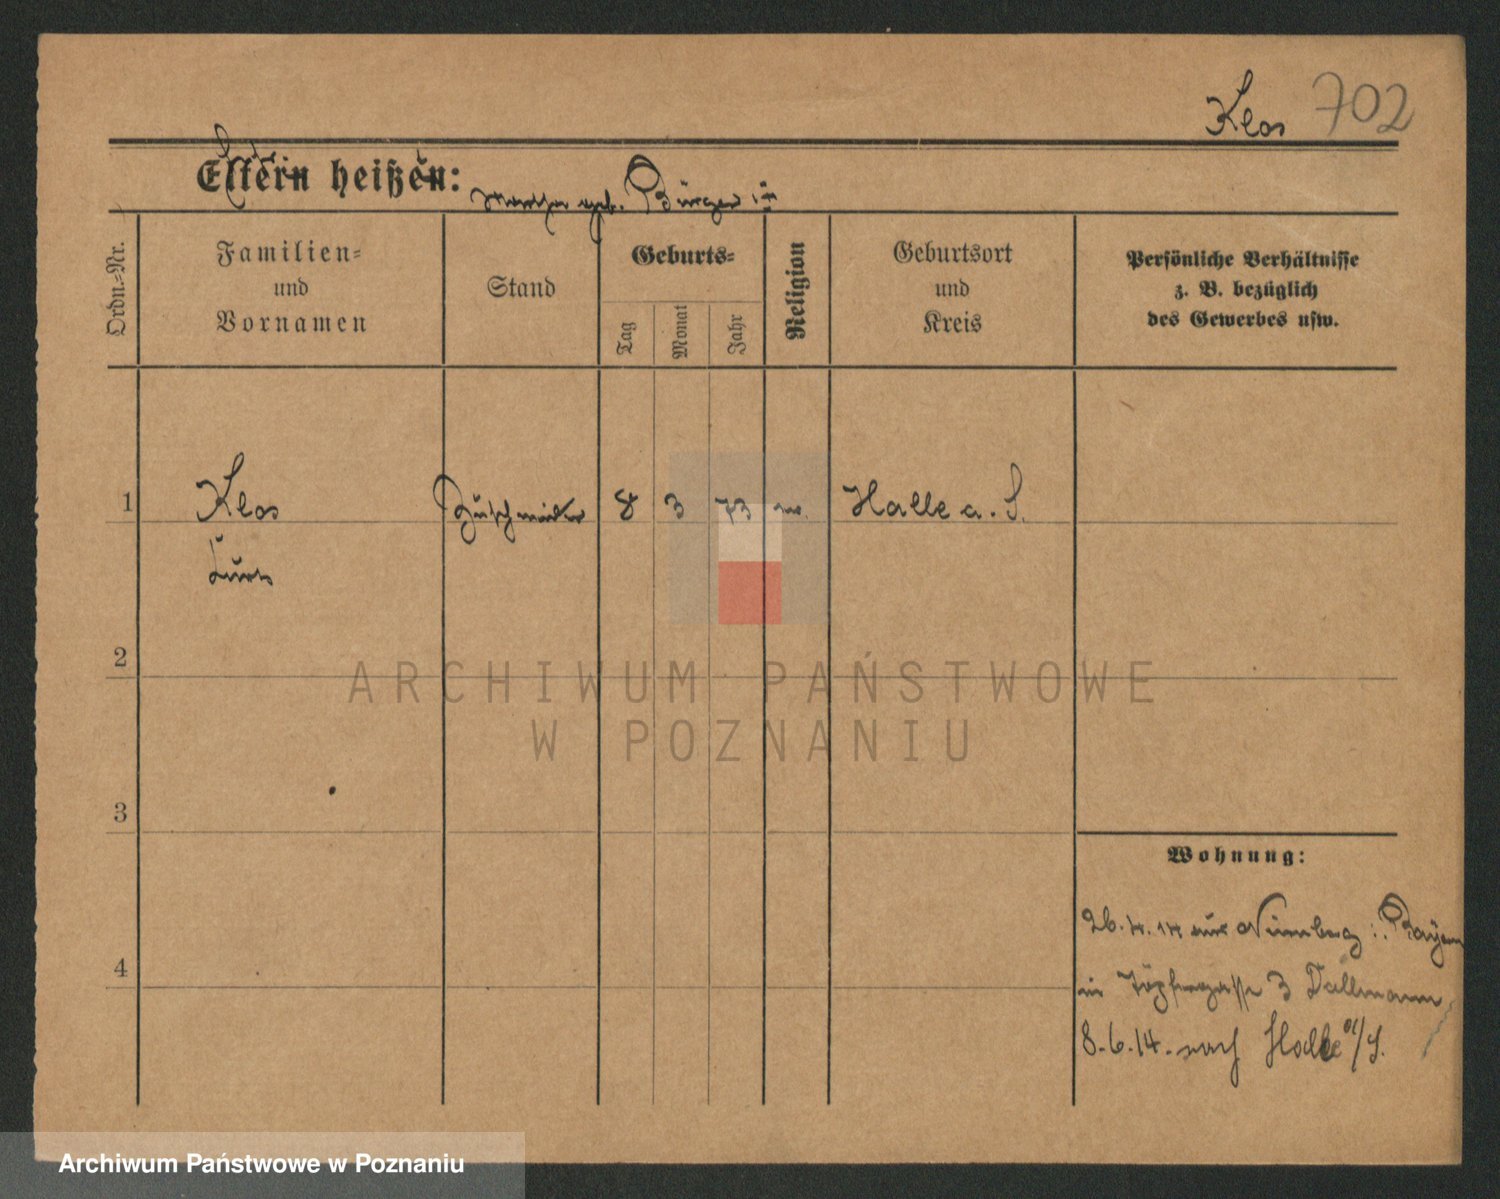 Klos 702
Eltern heißen:
geb. Bürger
Ordn.=Nr.
Familien=
und
Vornamen
Stand
Geburts=
Tag
Monat
Jahr
Religion
Geburtsort
und
Kreis
Persönliche Verhältnisse
z. B. bezüglich
des Gewerbes usw.
1 Klos 8 3 73 Halle a. S.
2
ARCHIWUM PAŃSTWOWE
W POZNANIU
3
Wohnung:
26. 4. 14 aus Nürnberg Bayern
4
in Töpfergasse 3 Dallmann
8. 6. 14. nach Halle a/S.
Archiwum Państwowe w Poznaniu